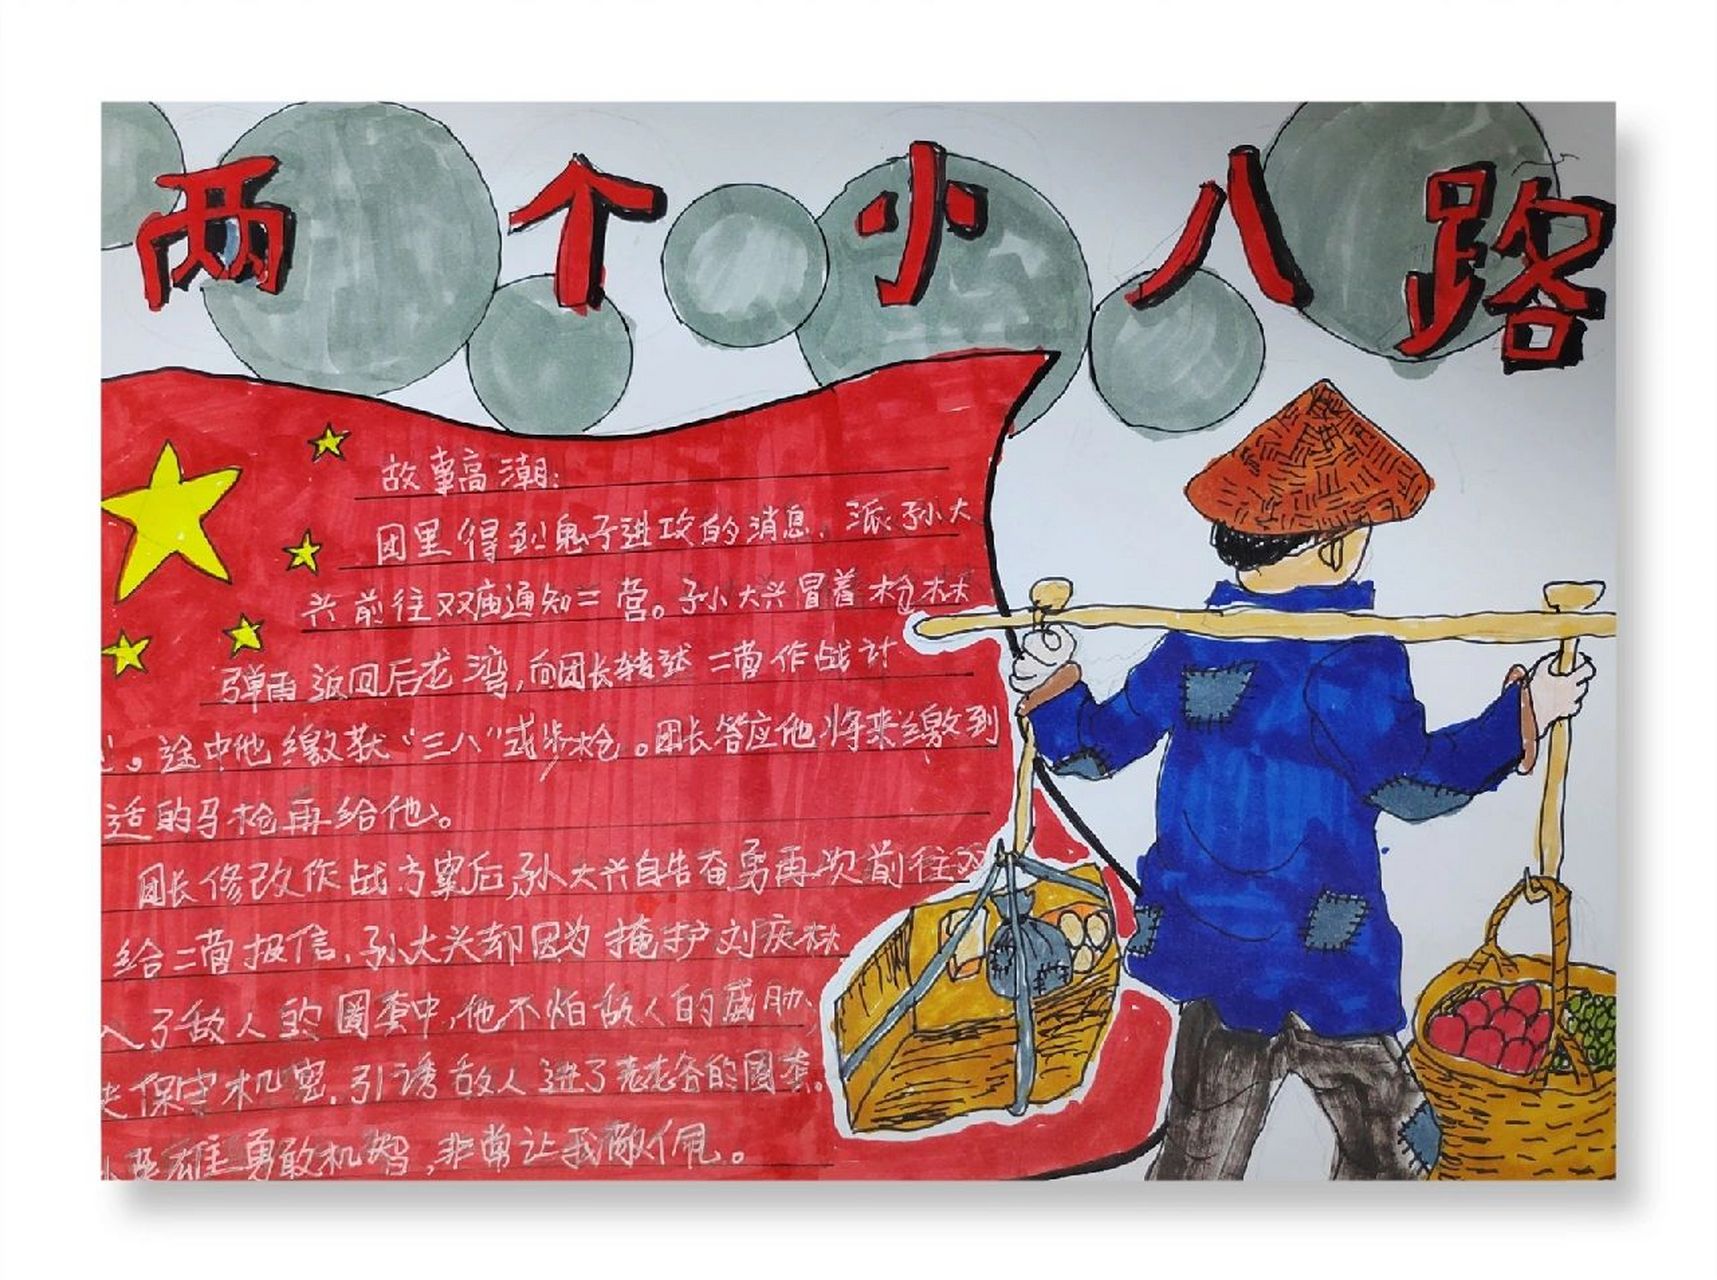 两个小八路
故事高潮:
团里得到鬼子进攻的消息,派孙大
兴前往双庙通知二营。孙大兴冒着枪林
弹雨返回后龙湾,向团长转述二营作战计
。途中他缴获“三八”式步枪。团长答应他将来缴到
适的马枪再给他。
团长修改作战方案后,孙大兴自告奋勇再次前往双
给二营报信,孙大兴却因为掩护刘庆林
入了敌人的圈套中,他不怕敌人的威胁、
保守机密,引诱敌人进了老志各的圈套。
小英雄勇敢机智,非常让我敬佩。